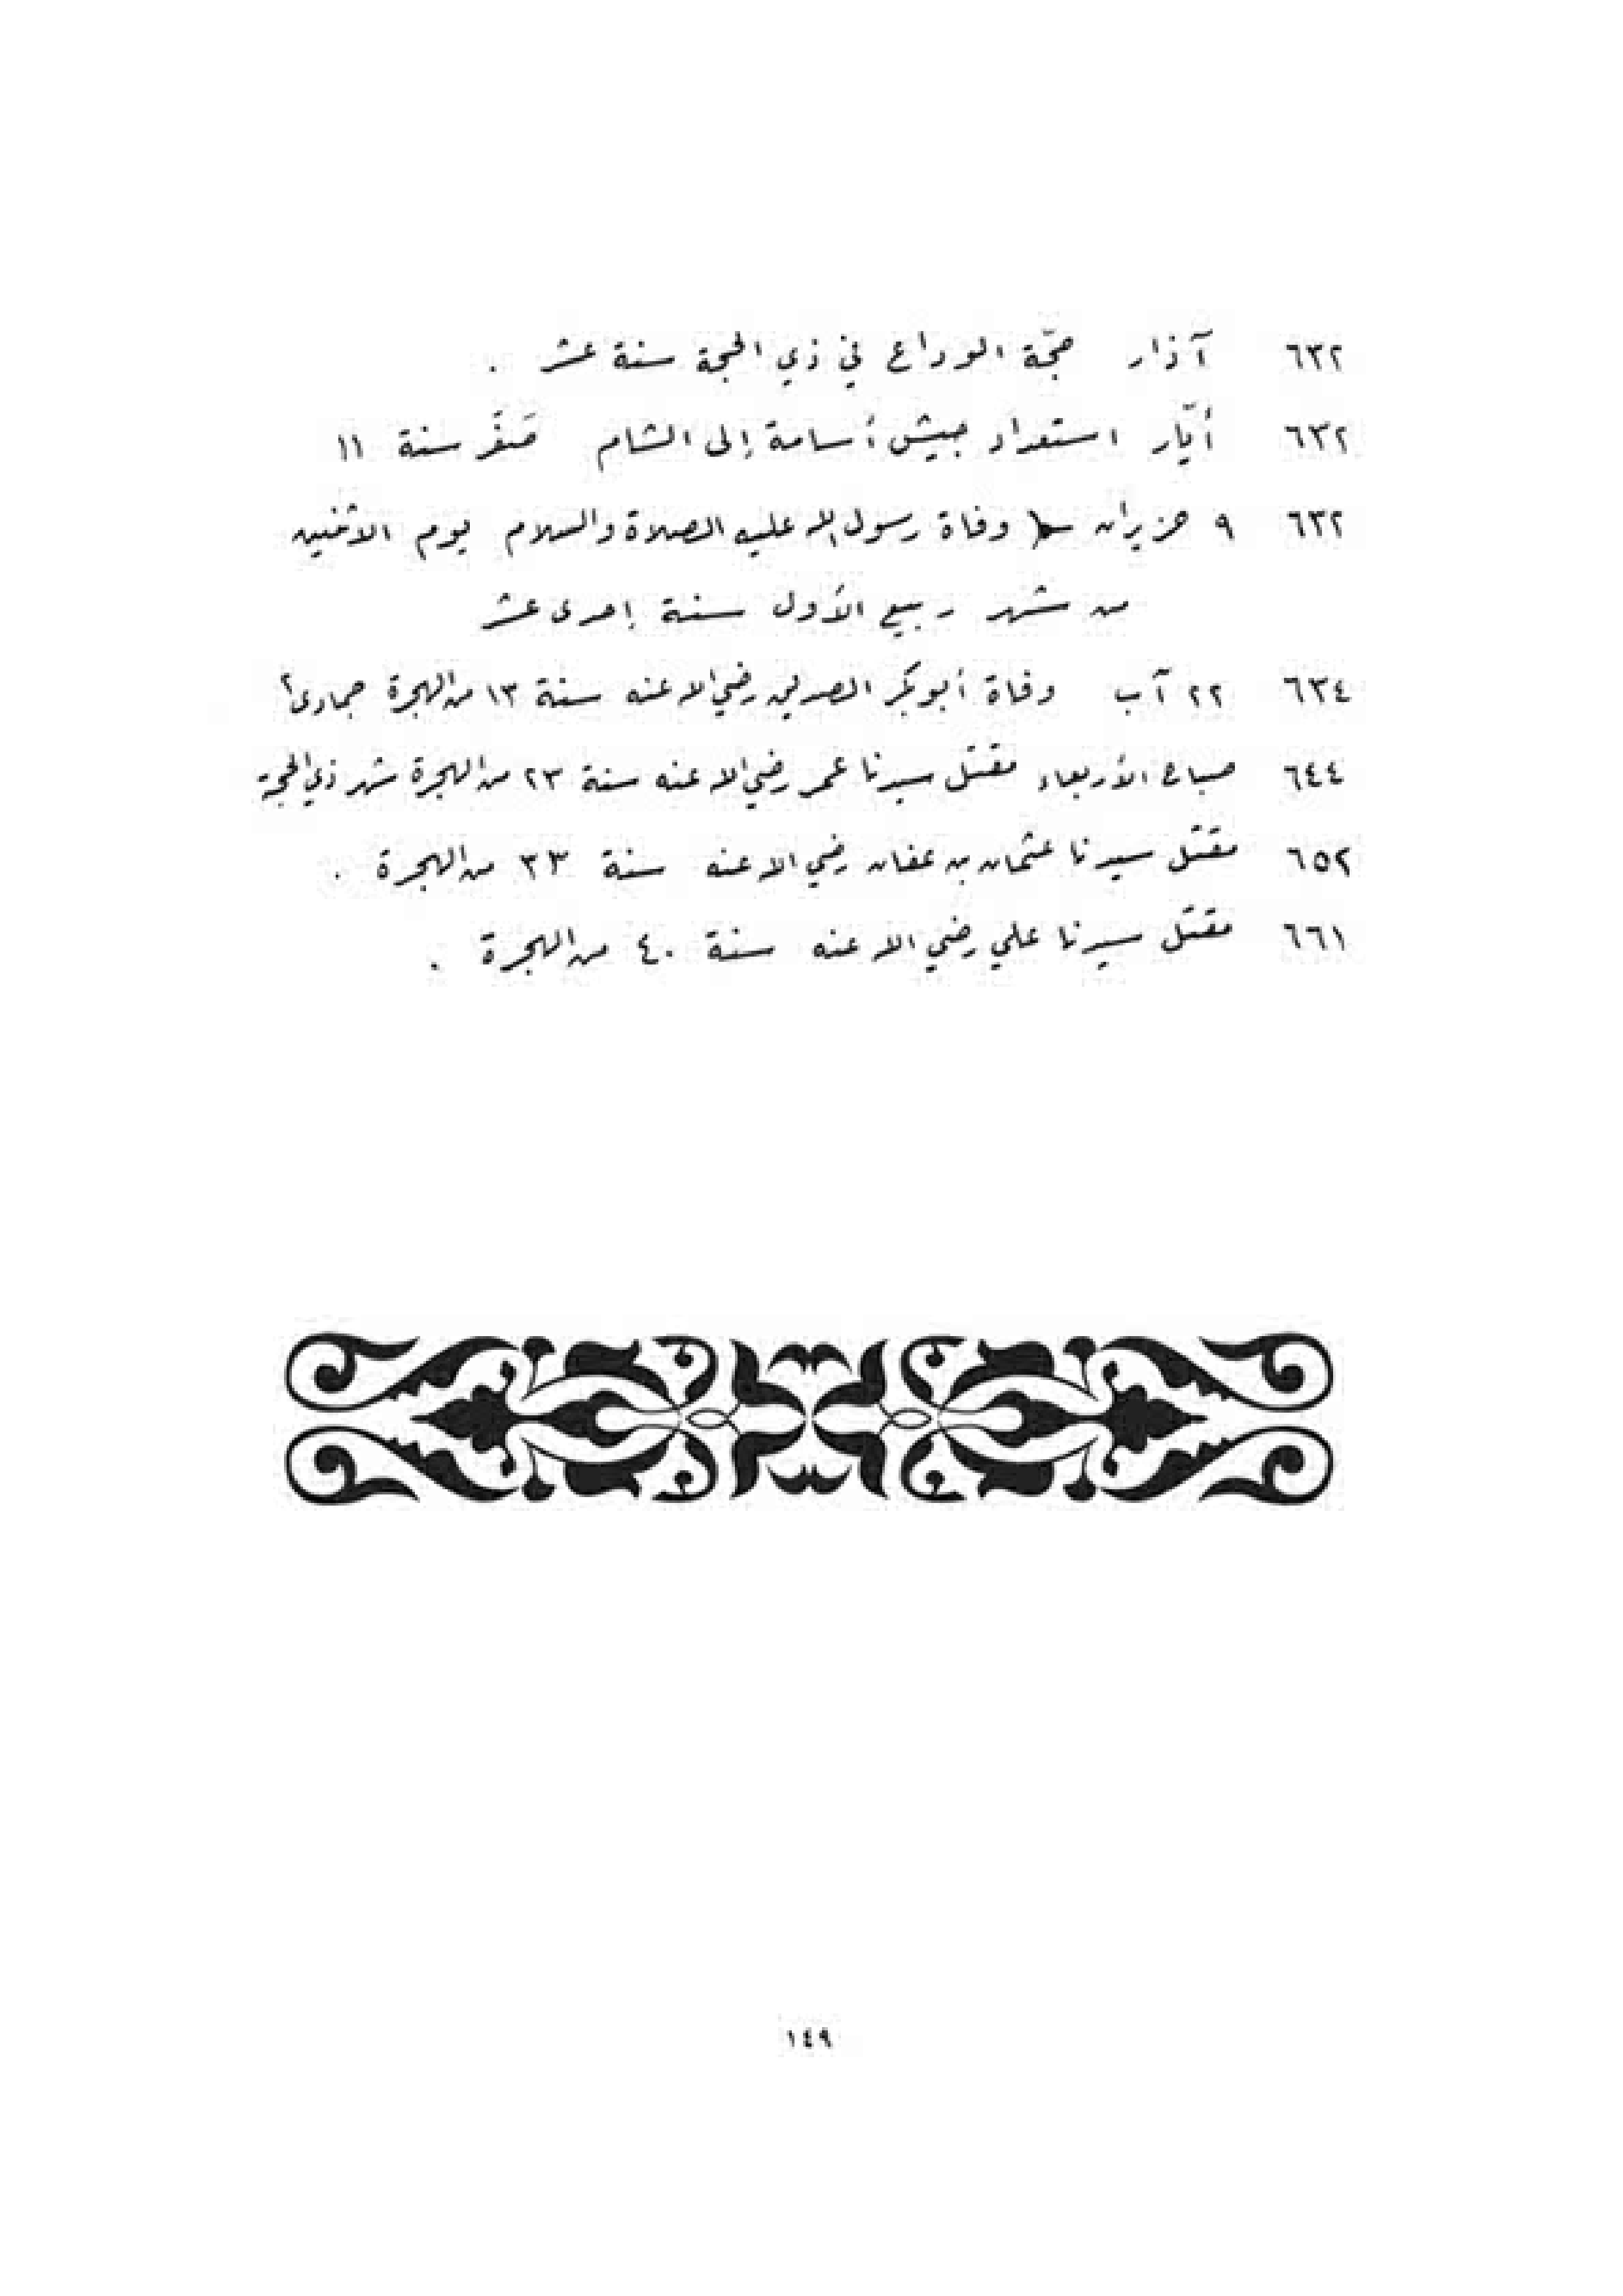 ٦٣٢ آذار حجّة الوداع في ذي الحجة سنة عشر .
٦٣٢ أيّار استعداد جيش أسامة إلى الشام صَفَر سنة ١١
٦٣٢ ٩ حزيران وفاة رسول الله عليه الصلاة والسلام يوم الاثنين
من شهر ربيع الأول سنة إحدى عشر
٦٣٤ ٢٢ آب وفاة أبو بكر الصديق رضي الله عنه سنة ١٣ من الهجرة جمادى٢
٦٤٤ صباح الأربعاء مقتل سيدنا عمر رضي الله عنه سنة ٢٣ من الهجرة شهر ذي الحجة
٦٥٢ مقتل سيدنا عثمان بن عفان رضي الله عنه سنة ٣٣ من الهجرة .
٦٦١ مقتل سيدنا علي رضي الله عنه سنة ٤٠ من الهجرة .
١٤٩